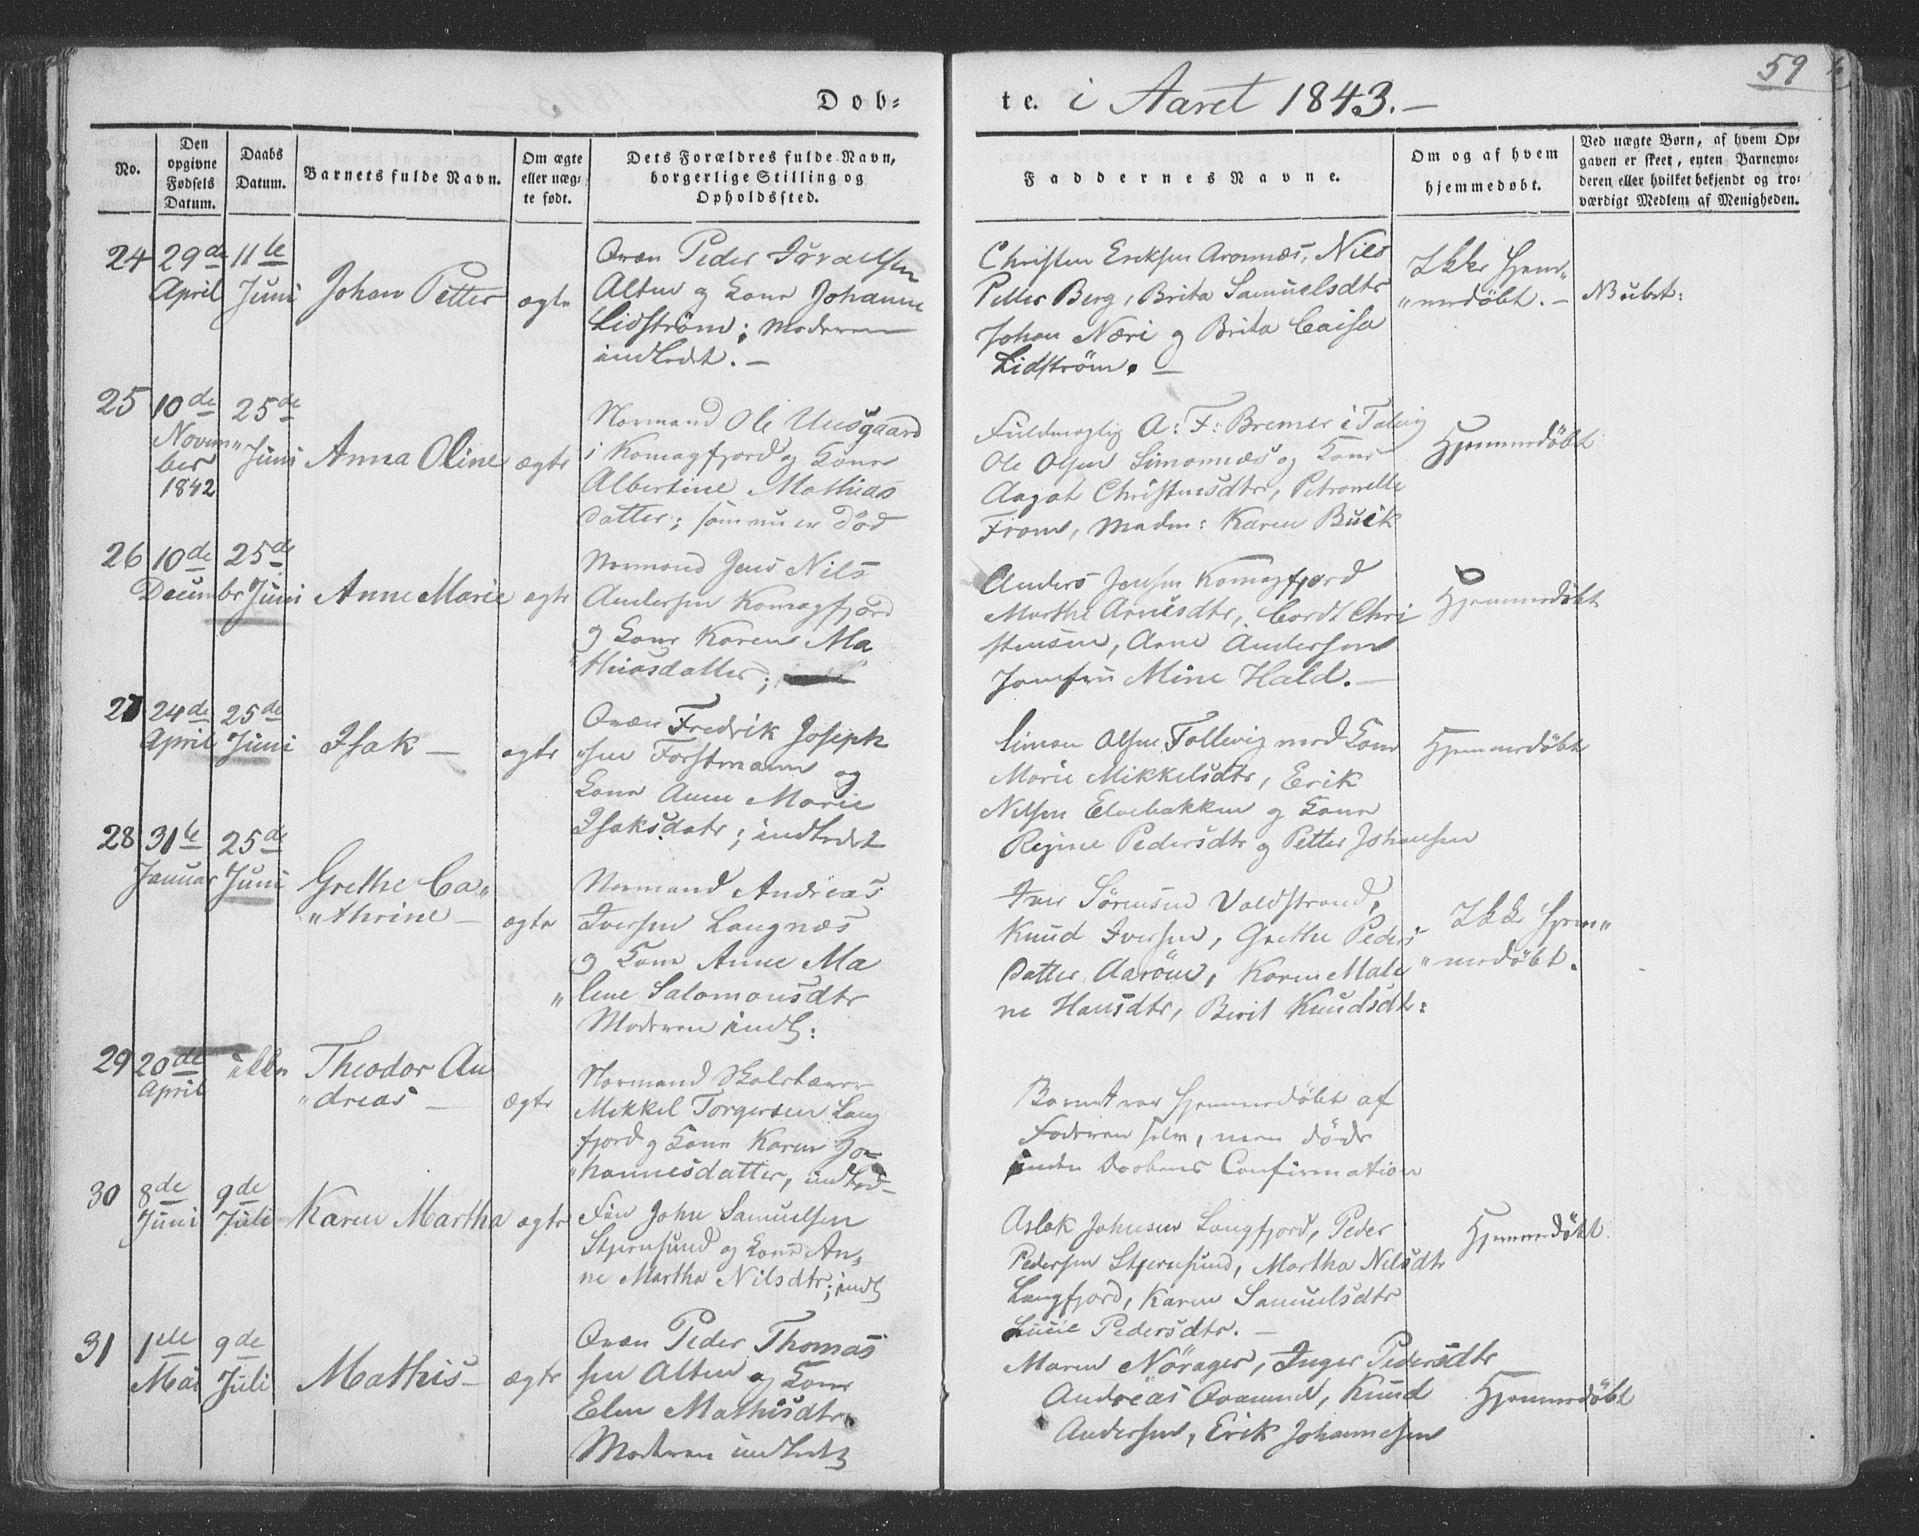 59
Døb-
te. i Aaret 1843.-
No.
Den opgivne Fødsels Datum.
Daabs Datum.
Barnets fulde Navn.
Om ægte eller uægte født.
Dets Forældres fulde Navn, borgerlige Stilling og Opholdssted.
Faddernes Navne.
Om og af hvem hjemmedøbt.
Ved uægte Børn, af hvem Opgaven er skeet, enten Barnemoderen eller hvilket bekjendt og troværdigt Medlem af Menigheden.
24
29de April
11te Juni
Johan Petter
ægte
Qvæn Peder Isralsen
Alten og Kone Johanne
Lidström; Moderen
indledet.-
Christen Eriksen Aronnæs, Nils
Petter Berg, Brita Samuelsdtr
Johan Næri og Brita Caisa
Lidström.-
Ikke Hjem-
"medøbt.-
25
10de November 1842
25de Juni
Anna Oline
ægte
Normand Ole Uusgaard
i Komagfjord og Kone
Albertine Mathias
datter; som nu er Død
Fuldmægtig A: F: Bremer i Talvig
Ole Olsen Simonnæs og Kone
Aagot Christensdtr, Petronelle
From, Madm: Karen Buck
Hjemmedøbt
26
10de Decembr
25de Juni
Anne Marie
ægte
Normand Jens Nils
Andersen Komagfjord
og Kone Karen Ma
"thiasdatter;
Anders Jensen Komagfjord
Marthe Arnesdtr, Cordt Chri
stensen, Arne Andersen
Jomfru Mine Hald.-
Hjemmedøbt
27
24de April
25de Juni
Isak -
ægte
Qvæn Fredrik Joseph
"sen Forstmann og
Kone Anne Marie
Isaksdatr; indledet
Simon Olsen Tollevig med Kone
Marie Mikkelsdtr, Erik
Nilsen Elvebakken og Kone
Regine Pedersdtr og Petter Johansen
Hjemmedøbt
28
31te Januar
25de Juni
Grethe Ca"
"thrine -
ægte
Normand Andreas
Iversen Langnæs
og Kone Anne Ma
"lene Salomonsdtr
Moderen indl:
Iver Sörensen Valdstrand,
Knud Iversen, Grethe Peders
datter Aaröen, Karen Male
ne Hansdtr, Berit Knudsdtr:
Ikke Hjem"
"medøbt.
29
20de April
Theodor An
"dreas -
ægte
Normand Skolelærer
Mikkel Torgersen Lang
fjord og Kone Karen Jo-
"hannesdatter, indled-
Barnet var Hjemmedöbt af
Faderen selv, men døde
inden Daabens Confirmation
30
8de Juni
9de Juli
Karen Martha
ægte
Fin John Samuelsen
Stjernsund og Kone An-
ne Martha Nilsdtr; indl
Aslak Johnsen Langfjord, Peder
Pedersen Stjernsund, Martha Nilsdtr
Langfjord, Karen Samuelsdtr
Lucie Pedersdtr.-
Hjemmedøbt
31
1ste Mai
9de Juli
Mathis -
ægte
Qvæn Peder Thomas
sen Alten og Kone
Elen Mathisdtr
Moderen indledt
Maren Nörager, Inger Pedersdtr
Andreas Qvamme, Knud
Andersen, Erik Johannesen
Hjemmedøbt